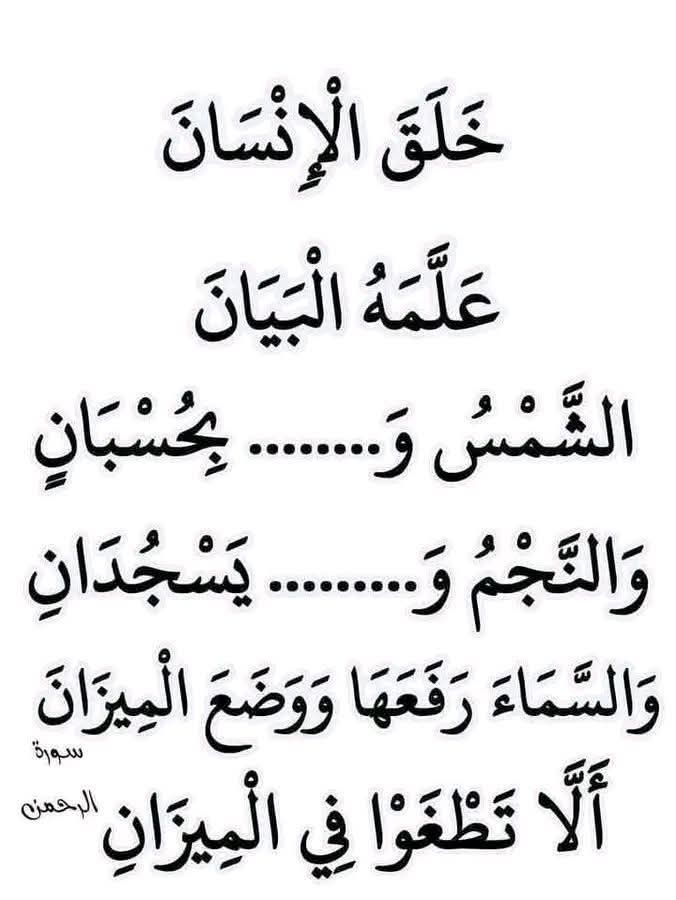 خَلَقَ الْإِنْسَانَ
عَلَّمَهُ الْبَيَانَ
الشَّمْسُ وَ........ بِحُسْبَانٍ
وَالنَّجْمُ وَ......... يَسْجُدَانِ
وَالسَّمَاءَ رَفَعَهَا وَوَضَعَ الْمِيزَانَ
سورة
أَلَّا تَطْغَوْا فِي الْمِيزَانِ
الرحمن